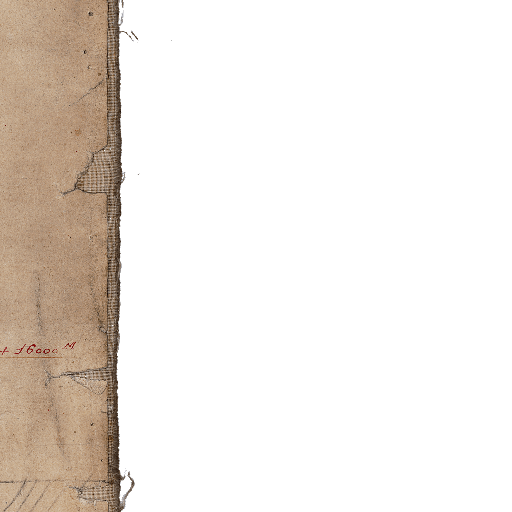 + 16000 M